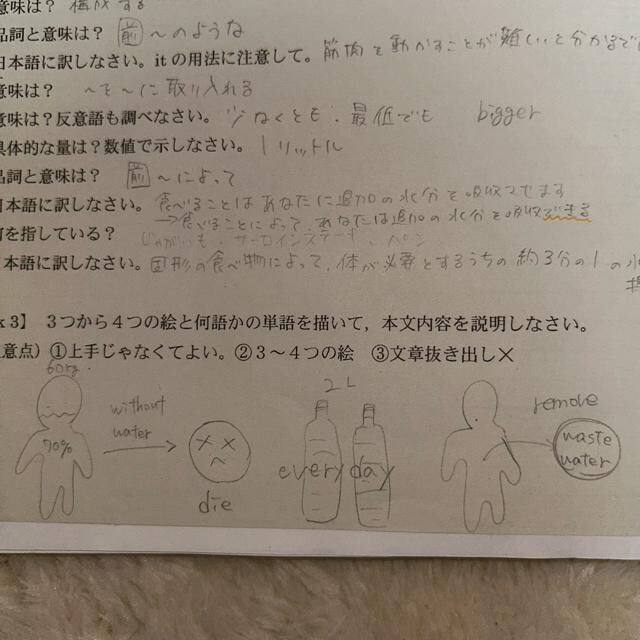 意味は？ 構成する
品詞と意味は？ 前 〜のような
日本語に訳しなさい。itの用法に注意して。 筋肉を動かすことが難しいと分かるで
意味は？ 〜を〜に取り入れる
意味は？反意語も調べなさい。 少なくとも、最低でも bigger
具体的な量は？数値で示しなさい。 1リットル
品詞と意味は？ 前 〜によって
日本語に訳しなさい。 食べることはあなたに追加の水分を吸収させます
→食べることによって、あなたは追加の水分を吸収できる
を指している？ じゃがいも、サーロインステーキ、パン
本語に訳しなさい。 固形の食べ物によって、体が必要とするうちの約3分の1の水
k 3】 3つから4つの絵と何語かの単語を描いて，本文内容を説明しなさい。
意点）①上手じゃなくてよい。②3〜4つの絵 ③文章抜き出し×
60kg
70%
without
water
die
2L
every day
remove
waste
water